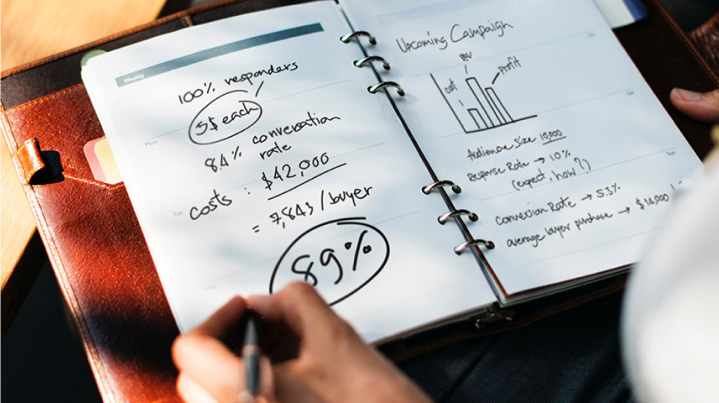 Weekly
100% responders
5$ each
8.4% conversation
rate
costs : $42,000
= 7,843 / buyer
89%
Upcoming Campaign
cost
profit
Audience size 10,000
Response Rate → 10%
(expect, how?)
Conversion Rate → 5.5%
average buyer purchase → $10,000